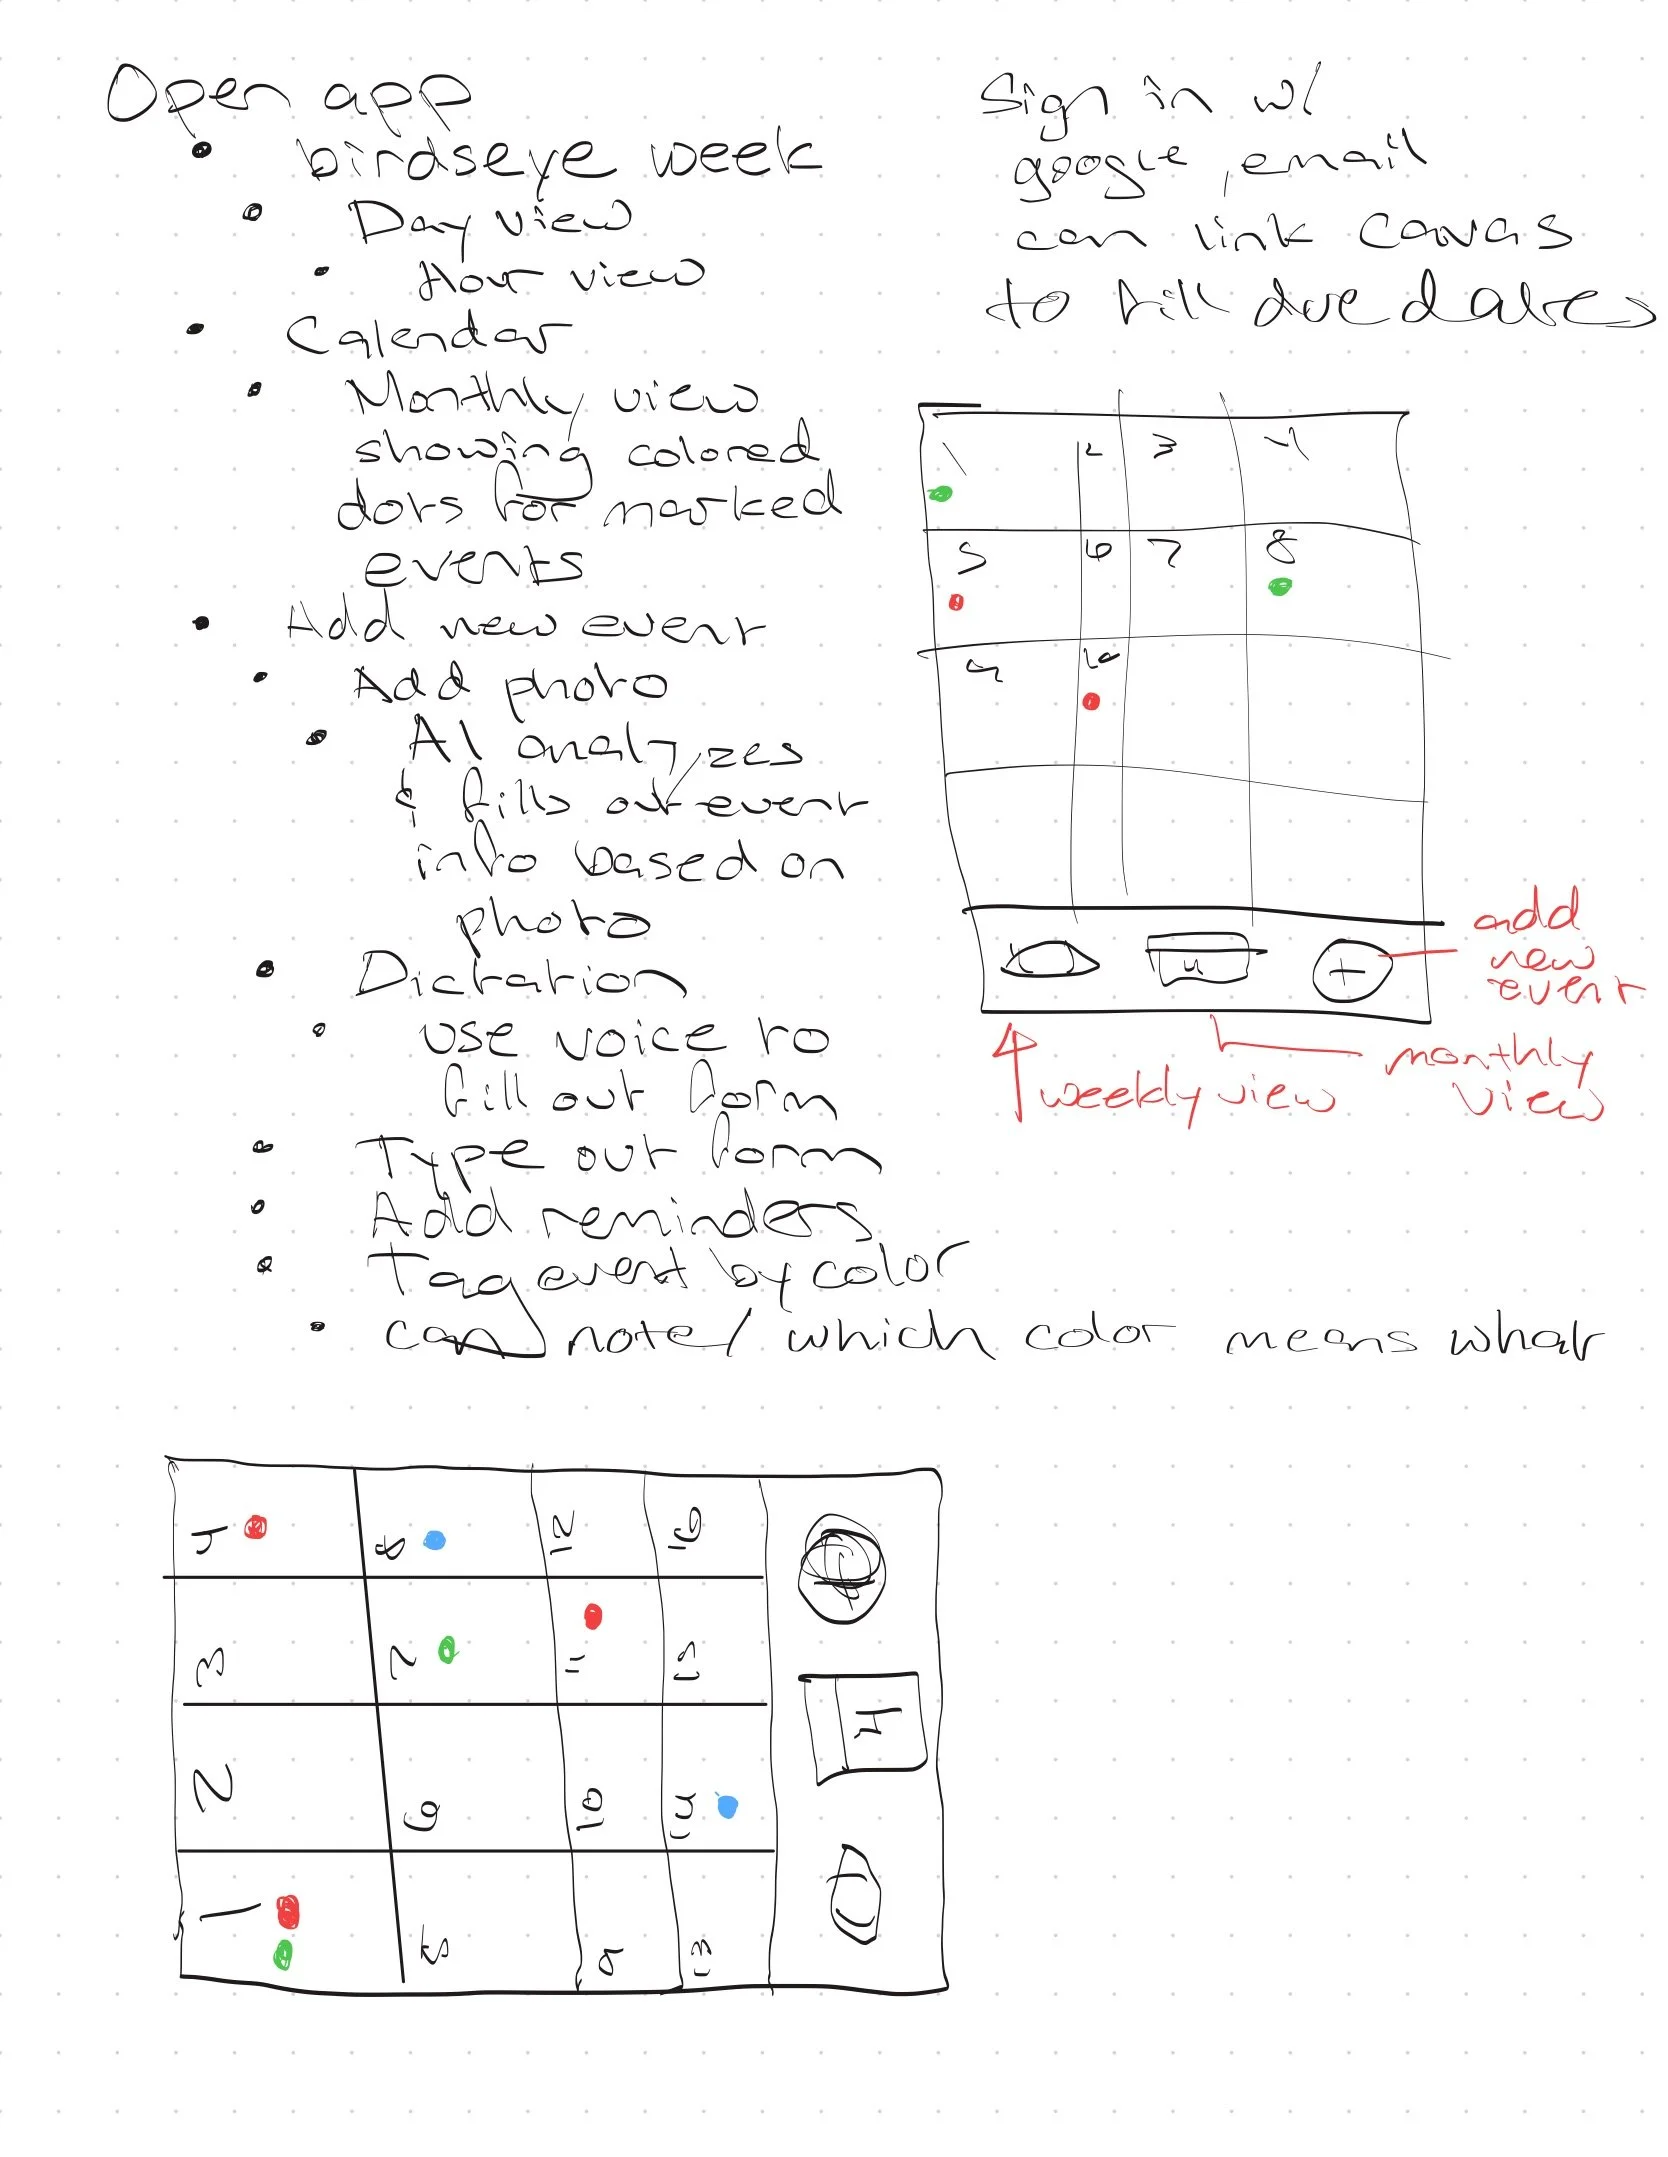 Open app
• birdseye week
• Day view
• Hour view
• Calendar
• Monthly view
showing colored
dots for marked
events
• Add new event
• Add photo
• AI analyzes
& fills out event
info based on
photo
• Dictation
• use voice to
fill out form
• Type out form
• Add reminders
• Tag event by color
• can note / which color means what
Sign in w/
google, email
can link canvas
to fill due dates
1 2 3 4
5 6 7 8
9 10
+
add
new
event
weekly view
monthly
view
4 8 12 16
3 7 11 15
2 6 10 14
1 5 9 13